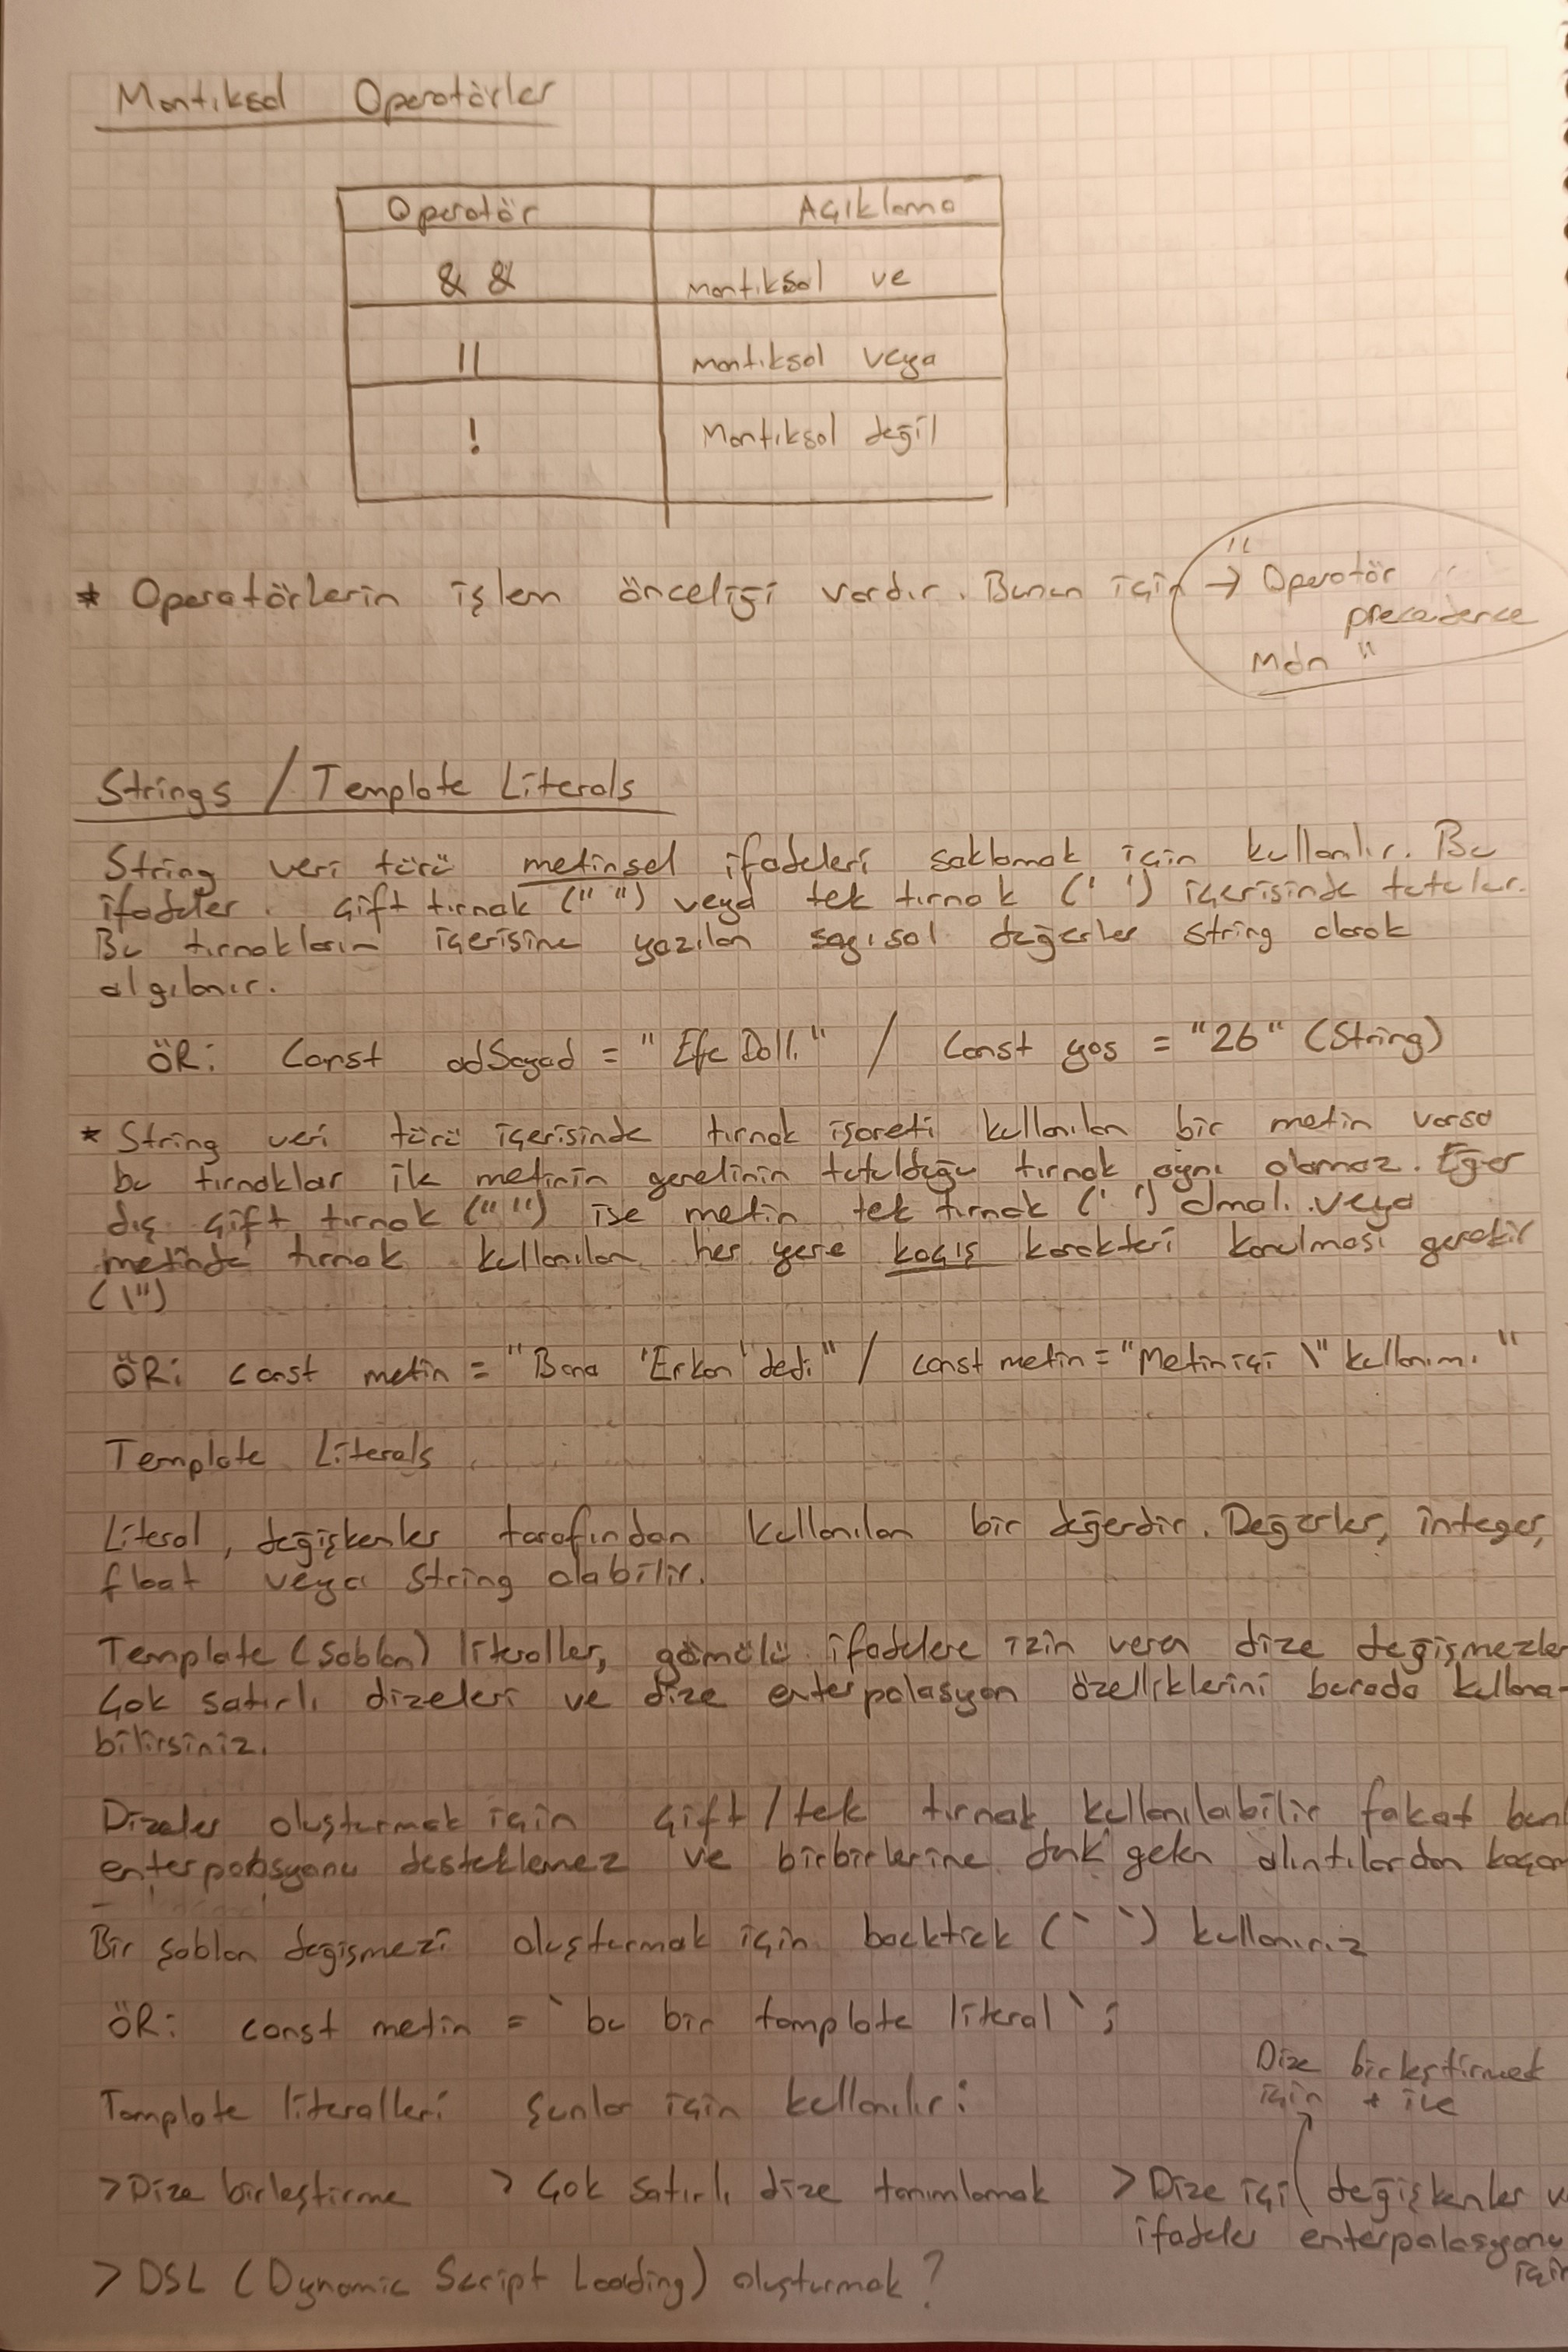 Mantıksal Operatörler
Operatör Açıklama
&& mantıksal ve
|| mantıksal veya
! Mantıksal değil
* Operatörlerin işlem önceliği vardır. Bunun için → " Operatör
precedence
Mdn "
Strings / Template Literals
String veri türü metinsel ifadeleri saklamak için kullanılır. Bu
ifadeler. çift tırnak (" ") veya tek tırnak (' ') içerisinde tutulur.
Bu tırnakların içerisine yazılan sayısal değerler string olarak
algılanır.
ÖR: Const adSoyad = " Efe Dallı " / Const yas = "26" (String)
* String veri türü içerisinde tırnak işareti kullanılan bir metin varsa
bu tırnaklar ile metinin genelinin tutulduğu tırnak aynı olamaz. Eğer
dış çift tırnak (" ") ise metin tek tırnak (' ') olmalı. veya
metinde tırnak kullanılan her yere kaçış karakteri konulması gerekir
(\")
ÖR: const metin = "Bana 'Erkan' dedi" / const metin = "Metin içi \" kullanımı "
Template Literals
Literal, değişkenler tarafından kullanılan bir değerdir. Değerler, integer,
float veya String olabilir.
Template (şablon) literaller, gömülü ifadelere izin veren dize değişmezler
Çok satırlı dizeleri ve dize enterpolasyon özelliklerini burada kullana-
bilirsiniz.
Dizeler oluşturmak için çift/tek tırnak kullanılabilir fakat
enterpolasyonu desteklemez ve birbirlerine denk gelen alıntılardan
Bir şablon değişmezi oluşturmak için backtick (` `) kullanırız
ÖR: const metin = ` bu bir template literal ` ;
Dize birleştirmek
için + ile
Template literalleri şunlar için kullanılır:
> Dize birleştirme > Çok satırlı dize tanımlamak > Dize içi değişkenler
ifadeler enterpolasyonu
için
> DSL (Dynamic Script Loading) oluşturmak ?